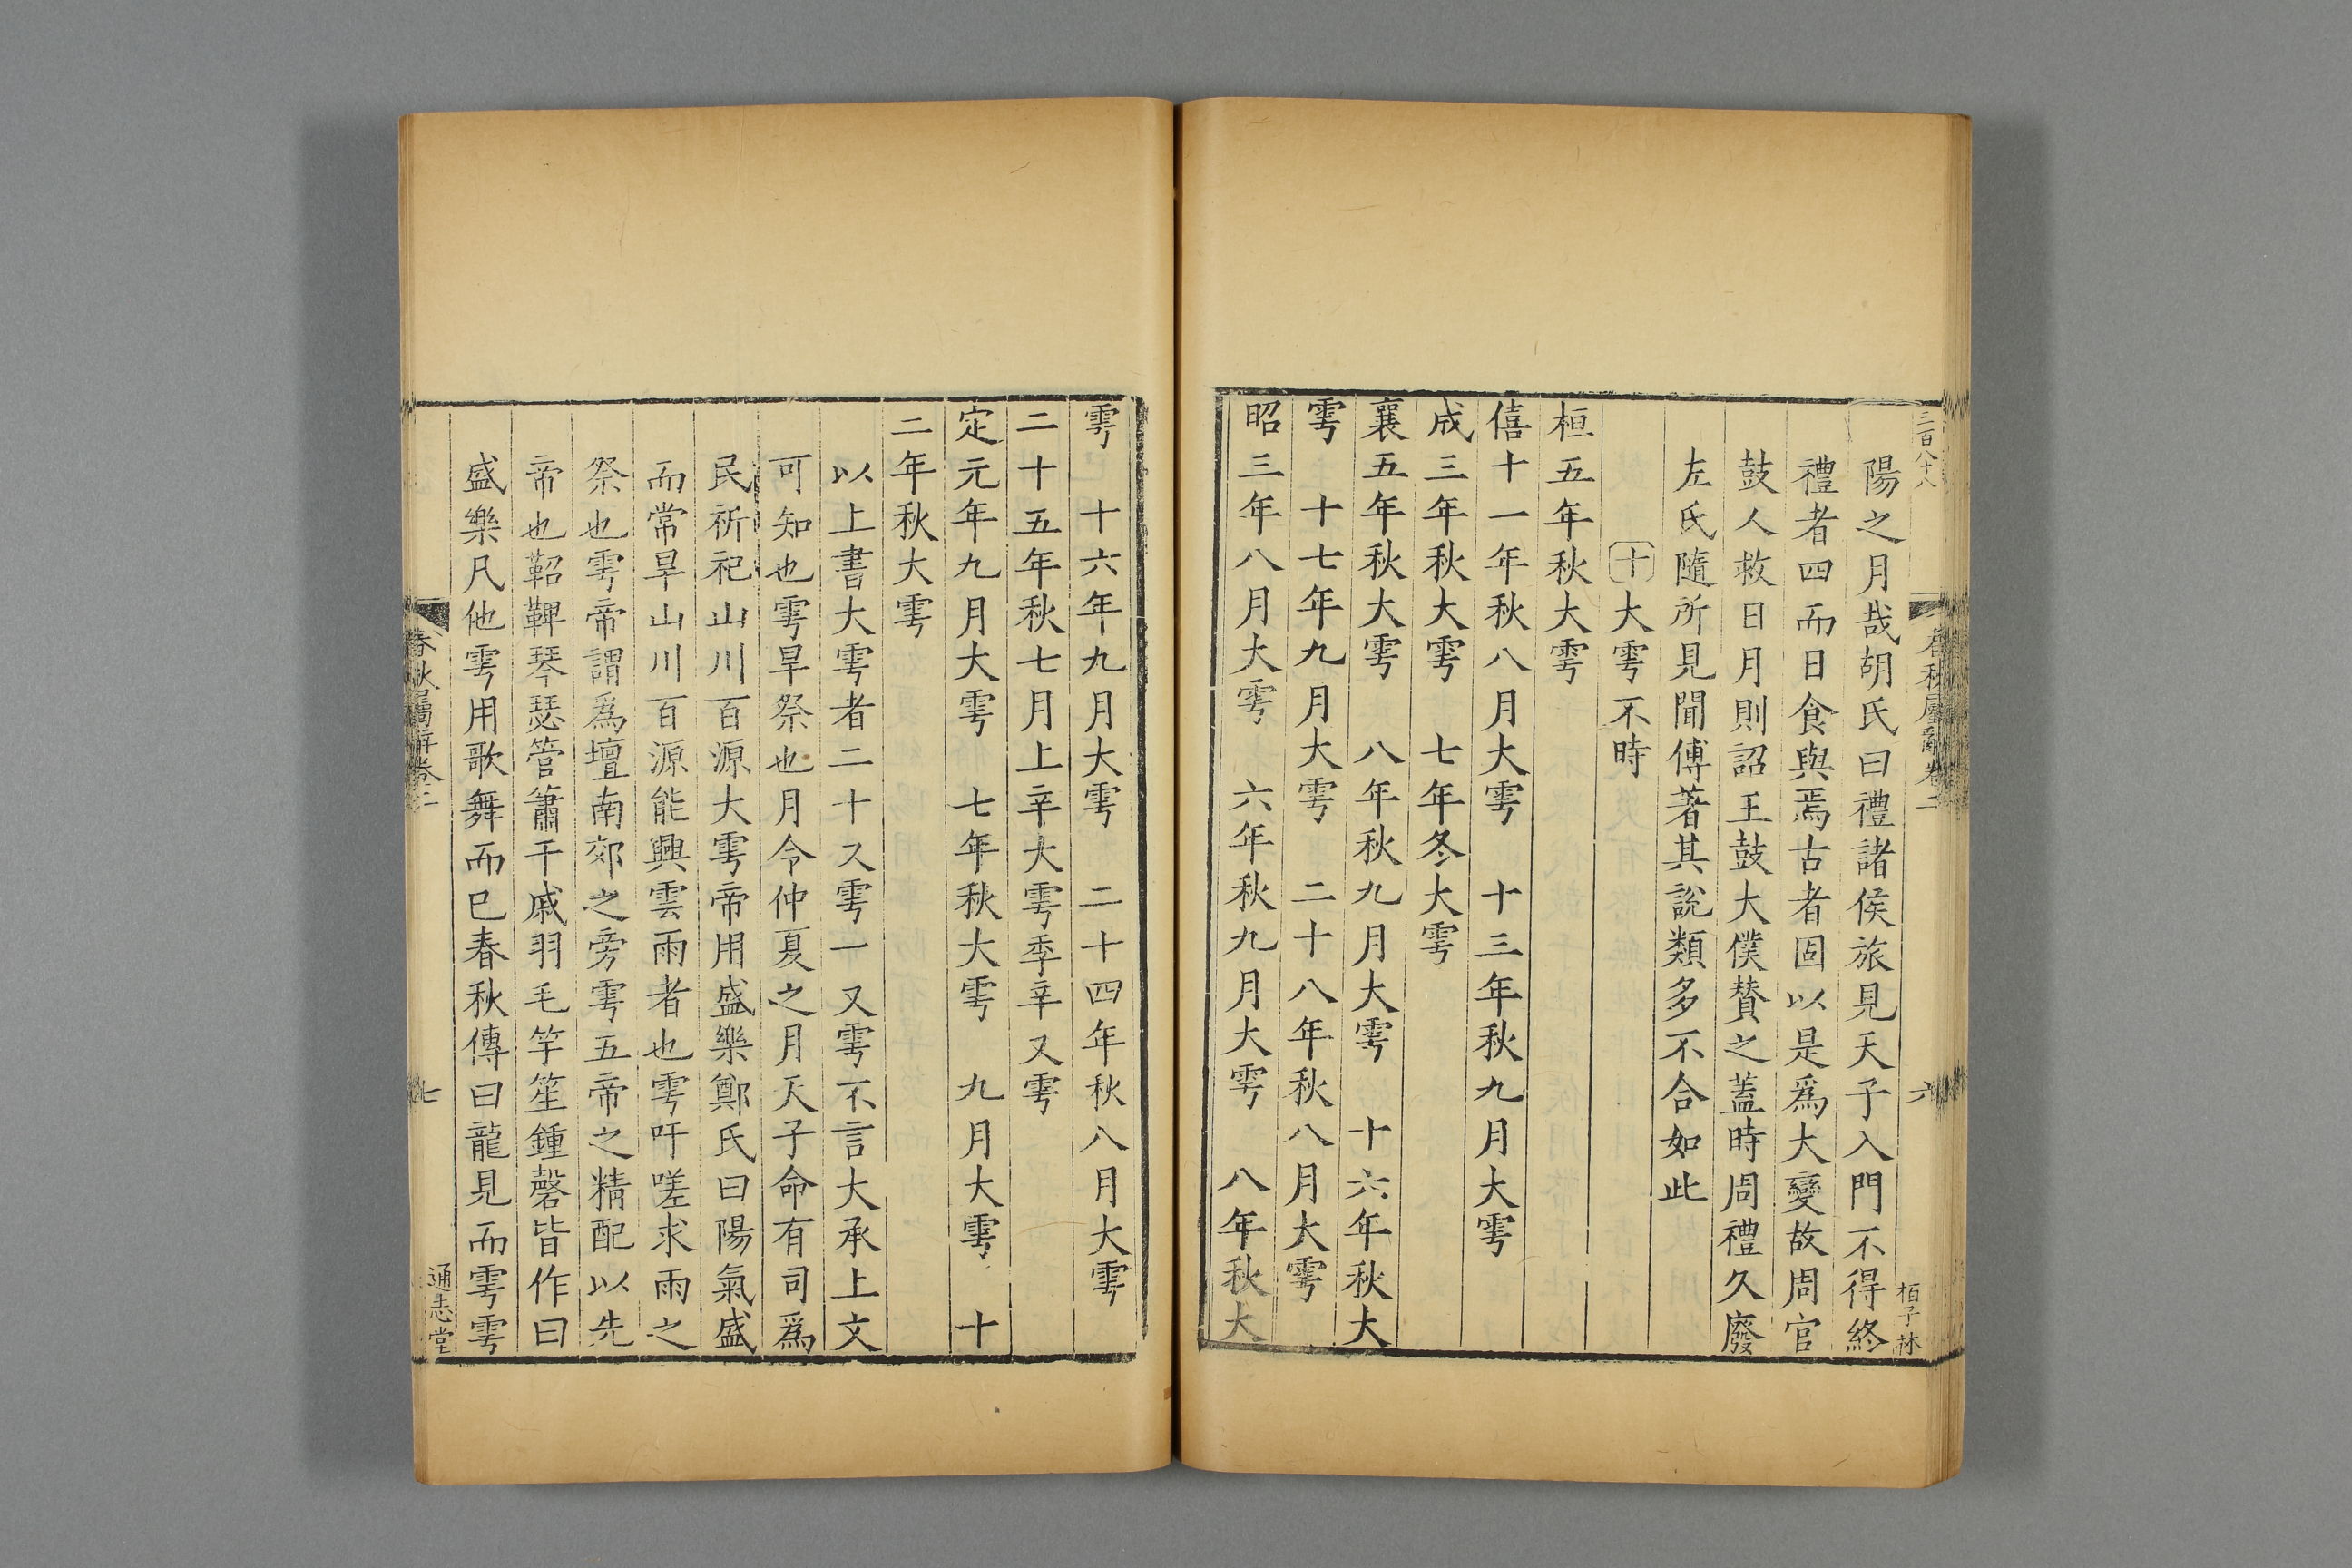 三百八十八
春秋屬辭卷二
六
栢子林
陽之月哉胡氏曰禮諸侯旅見天子入門不得終
禮者四而日食與焉古者固以是爲大變故周官
鼓人救日月則詔王鼓大僕賛之蓋時周禮久廢
左氏隨所見聞傅著其說類多不合如此
十大雩不時
桓五年秋大雩
僖十一年秋八月大雩　十三年秋九月大雩
成三年秋大雩　七年冬大雩
襄五年秋大雩　八年秋九月大雩　十六年秋大
雩　十七年九月大雩　二十八年秋八月大雩
昭三年八月大雩　六年秋九月大雩　八年秋大
雩　十六年九月大雩　二十四年秋八月大雩
二十五年秋七月上辛大雩季辛又雩
定元年九月大雩　七年秋大雩　九月大雩　十
二年秋大雩
以上書大雩者二十又雩一又雩不言大承上文
可知也雩旱祭也月令仲夏之月天子命有司爲
民祈祀山川百源大雩帝用盛樂鄭氏曰陽氣盛
而常旱山川百源能興雲雨者也雩吁嗟求雨之
祭也雩帝謂爲壇南郊之旁雩五帝之精配以先
帝也鞀鞞琴瑟管簫干戚羽毛竽笙鍾磬皆作曰
盛樂凡他雩用歌舞而已春秋傳曰龍見而雩雩
春秋屬辭卷二
七
通志堂